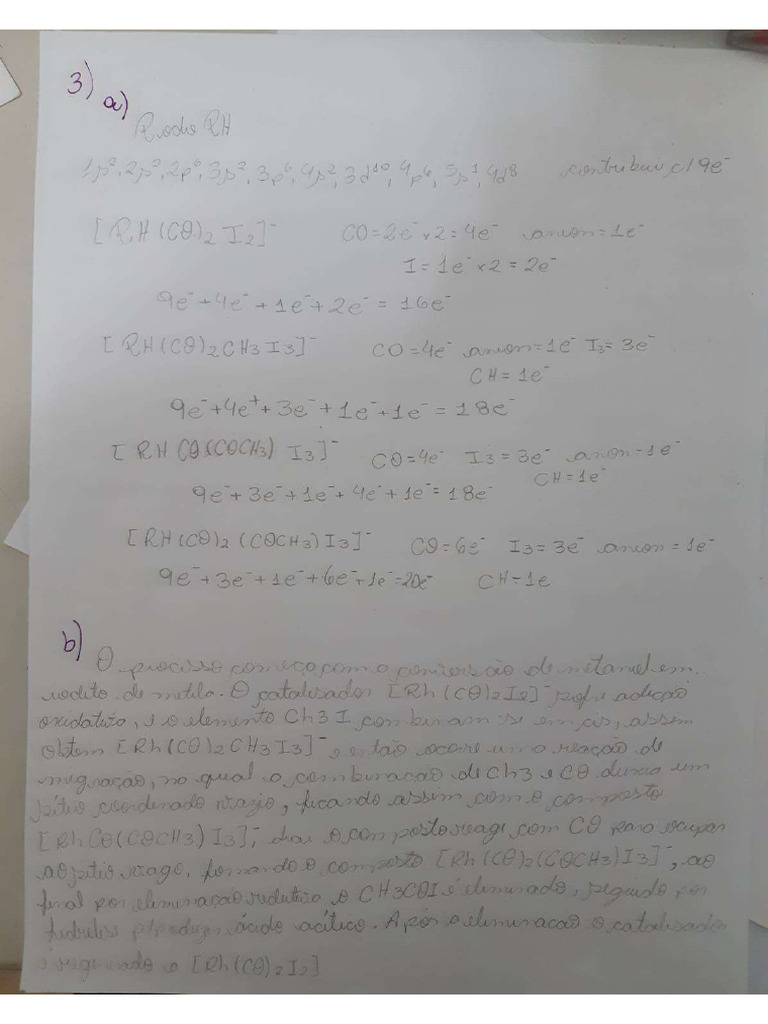 3) a)
Rodio RH
1s², 2s², 2p⁶, 3s², 3p⁶, 4s², 3d¹⁰, 4p⁶, 5s¹, 4d⁸ contribui c/ 9e⁻
[RH(CO)₂ I₂]⁻ CO = 2e⁻ x 2 = 4e⁻ anion = 1e⁻
I = 1e⁻ x 2 = 2e⁻
9e⁻ + 4e⁻ + 1e⁻ + 2e⁻ = 16e⁻
[RH(CO)₂ CH3 I3]⁻ CO = 4e⁻ anion = 1e⁻ I3 = 3e⁻
CH = 1e⁻
9e⁻ + 4e⁺ + 3e⁻ + 1e⁻ + 1e⁻ = 18e⁻
[RH CO(COCH3) I3]⁻ CO = 4e⁻ I3 = 3e⁻ anion = 1e⁻
CH = 1e⁻
9e⁻ + 3e⁻ + 1e⁻ + 4e⁻ + 1e⁻ = 18e⁻
[RH(CO)₂ (COCH3) I3]⁻ CO = 6e⁻ I3 = 3e⁻ anion = 1e⁻
9e⁻ + 3e⁻ + 1e⁻ + 6e⁻ + 1e⁻ = 20e⁻ CH = 1e
b) O processo começa com a conversão de metanol em
iodito de metila. O catalisador [Rh(CO)2I2]⁻ sofre adição
oxidativa, e o elemento Ch3 I combinam-se em cis, assim
obtem [Rh(CO)2CH3I3]⁻, então ocorre uma reação de
migração, na qual a combinacão de Ch3 e CO deixa um
sítio coordenado vazio, ficando assim com o composto
[RhCO(COCH3)I3]⁻, o composto reage com CO para ocupar
sítio vago, formando o composto [Rh(CO)2(COCH3)I3]⁻, ao
final por eliminação redutiva o CH3COI é eliminado, seguido por
p/ produzir ácido acético. Após a eliminacão o catalisador
é o [Rh(CO)2I2]